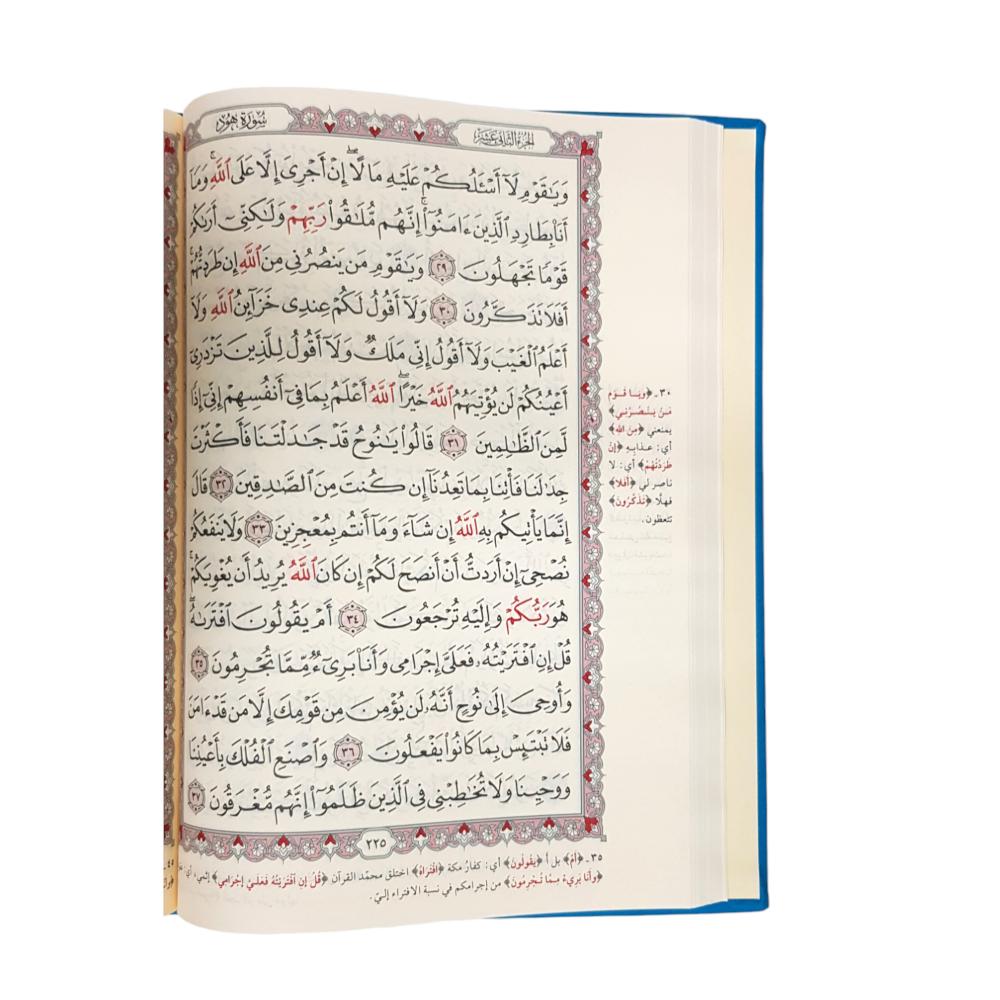 سُورَةُ هُودٍ
الجُزْءُ الثَّانِي عَشَرَ
وَيَٰقَوْمِ لَآ أَسْـَٔلُكُمْ عَلَيْهِ مَالًاۖ إِنْ أَجْرِيَ إِلَّا عَلَى ٱللَّهِۚ وَمَآ
أَنَا۠ بِطَارِدِ ٱلَّذِينَ ءَامَنُوٓا۟ۚ إِنَّهُم مُّلَٰقُوا۟ رَبِّهِمْ وَلَٰكِنِّىٓ أَرَىٰكُمْ
قَوْمًا تَجْهَلُونَ ٢٩ وَيَٰقَوْمِ مَن يَنصُرُنِى مِنَ ٱللَّهِ إِن طَرَدتُّهُمْۚ
أَفَلَا تَذَكَّرُونَ ٣٠ وَلَآ أَقُولُ لَكُمْ عِندِى خَزَآئِنُ ٱللَّهِ وَلَآ
أَعْلَمُ ٱلْغَيْبَ وَلَآ أَقُولُ إِنِّى مَلَكٌ وَلَآ أَقُولُ لِلَّذِينَ تَزْدَرِىٓ
أَعْيُنُكُمْ لَن يُؤْتِيَهُمُ ٱللَّهُ خَيْرًاۖ ٱللَّهُ أَعْلَمُ بِمَا فِىٓ أَنفُسِهِمْۖ إِنِّىٓ إِذًا
لَّمِنَ ٱلظَّٰلِمِينَ ٣١ قَالُوا۟ يَٰنُوحُ قَدْ جَٰدَلْتَنَا فَأَكْثَرْتَ
جِدَٰلَنَا فَأْتِنَا بِمَا تَعِدُنَآ إِن كُنتَ مِنَ ٱلصَّٰدِقِينَ ٣٢ قَالَ
إِنَّمَا يَأْتِيكُم بِهِ ٱللَّهُ إِن شَآءَ وَمَآ أَنتُم بِمُعْجِزِينَ ٣٣ وَلَا يَنفَعُكُمْ
نُصْحِىٓ إِنْ أَرَدتُّ أَنْ أَنصَحَ لَكُمْ إِن كَانَ ٱللَّهُ يُرِيدُ أَن يُغْوِيَكُمْۚ
هُوَ رَبُّكُمْ وَإِلَيْهِ تُرْجَعُونَ ٣٤ أَمْ يَقُولُونَ ٱفْتَرَىٰهُۖ
قُلْ إِنِ ٱفْتَرَيْتُهُۥ فَعَلَىَّ إِجْرَامِى وَأَنَا۠ بَرِىٓءٌ مِّمَّا تُجْرِمُونَ ٣٥
وَأُوحِىَ إِلَىٰ نُوحٍ أَنَّهُۥ لَن يُؤْمِنَ مِن قَوْمِكَ إِلَّا مَن قَدْ ءَامَنَ
فَلَا تَبْتَئِسْ بِمَا كَانُوا۟ يَفْعَلُونَ ٣٦ وَٱصْنَعِ ٱلْفُلْكَ بِأَعْيُنِنَا
وَوَحْيِنَا وَلَا تُخَٰطِبْنِى فِى ٱلَّذِينَ ظَلَمُوٓا۟ۚ إِنَّهُم مُّغْرَقُونَ ٣٧
٢٢٥
٣٠ـ ﴿وَيَا قَوْمِ
مَنْ يَنْصُرُنِي﴾
يمنعني ﴿مِنَ الله﴾
أي: عذابه ﴿إِنْ
طَرَدْتُهُمْ﴾ أي: لا
ناصر لي ﴿أَفَلا﴾
فهلّا ﴿تَذَكَّرُونَ﴾
تتعظون.
٣٥ـ ﴿أَمْ﴾ بل أ ﴿يَقُولُونَ﴾ أي: كفار مكة ﴿افْتَرَاهُ﴾ اختلق محمّد القرآن ﴿قُلْ إِنِ افْتَرَيْتُهُ فَعَلَيَّ إِجْرَامِي﴾ إثمي، أي:
﴿وَأَنَا بَرِيءٌ مِمَّا تُجْرِمُونَ﴾ من إجرامكم في نسبة الافتراء إليّ.